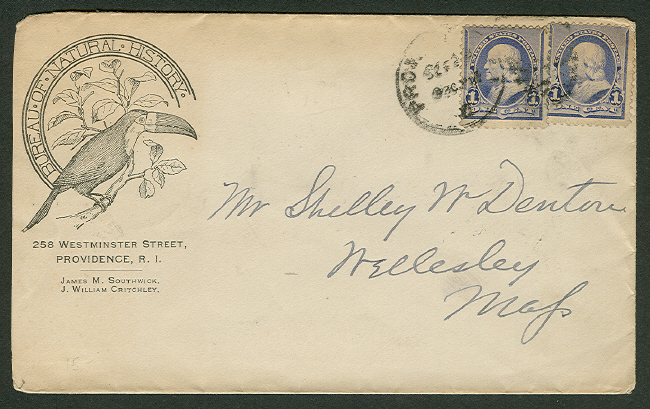 BUREAU · OF · NATURAL · HISTORY ·
258 WESTMINSTER STREET,
PROVIDENCE, R. I.
JAMES M. SOUTHWICK,
J. WILLIAM CRITCHLEY.
PROV
UNITED STATES POSTAGE
1 1
ONE CENT
1 1
ONE CENT
Mr Shelley W Denton
Wellesley
Mass